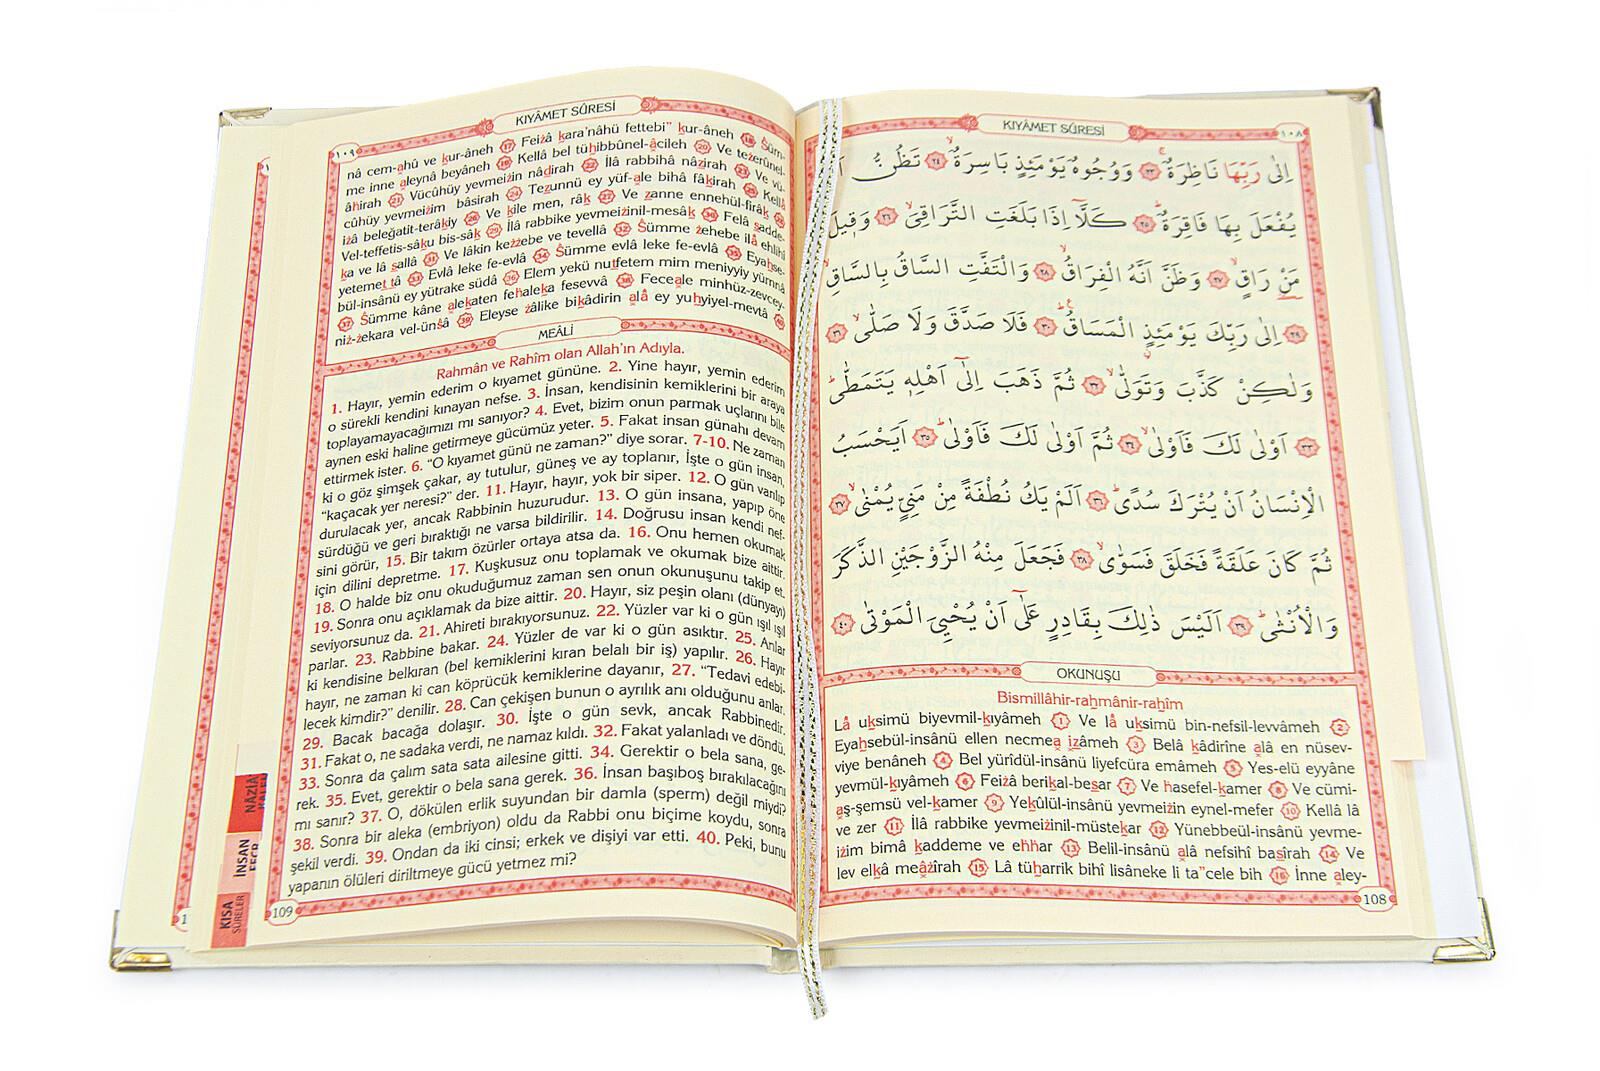 KIYÂMET SÛRESİ
١٠٨
اِلٰى رَبِّهَا نَاظِرَةٌ ﴿٢٣﴾ وَوُجُوهٌ يَوْمَئِذٍ بَاسِرَةٌ ﴿٢٤﴾ تَظُنُّ
يُفْعَلَ بِهَا فَاقِرَةٌ ﴿٢٥﴾ كَلَّٓا اِذَا بَلَغَتِ التَّرَاقِيَ ﴿٢٦﴾ وَقٖيلَ
مَنْ رَاقٍ ﴿٢٧﴾ وَظَنَّ اَنَّهُ الْفِرَاقُ ﴿٢٨﴾ وَالْتَفَّتِ السَّاقُ بِالسَّاقِ
﴿٢٩﴾ اِلٰى رَبِّكَ يَوْمَئِذٍ الْمَسَاقُ ﴿٣٠﴾ فَلَا صَدَّقَ وَلَا صَلّٰى ﴿٣١﴾
وَلٰكِنْ كَذَّبَ وَتَوَلّٰى ﴿٣٢﴾ ثُمَّ ذَهَبَ اِلٰٓى اَهْلِهٖ يَتَمَطّٰى
﴿٣٣﴾ اَوْلٰى لَكَ فَاَوْلٰى ﴿٣٤﴾ ثُمَّ اَوْلٰى لَكَ فَاَوْلٰى ﴿٣٥﴾ اَيَحْسَبُ
الْاِنْسَانُ اَنْ يُتْرَكَ سُدًى ﴿٣٦﴾ اَلَمْ يَكُ نُطْفَةً مِنْ مَنِيٍّ يُمْنٰى ﴿٣٧﴾
ثُمَّ كَانَ عَلَقَةً فَخَلَقَ فَسَوّٰى ﴿٣٨﴾ فَجَعَلَ مِنْهُ الزَّوْجَيْنِ الذَّكَرَ
وَالْاُنْثٰى ﴿٣٩﴾ اَلَيْسَ ذٰلِكَ بِقَادِرٍ عَلٰٓى اَنْ يُحْيِيَ الْمَوْتٰى ﴿٤٠﴾
OKUNUŞU
Bismillâhir-rahmânir-rahîm
Lâ uksimü biyevmil-kıyâmeh 1 Ve lâ uksimü bin-nefsil-levvâmeh 2
Eyahsebül-insânü ellen necmea izâmeh 3 Belâ kâdirîne alâ en nüsev-
viye benâneh 4 Bel yürîdül-insânü liyefcüra emâmeh 5 Yes-elü eyyâne
yevmül-kıyâmeh 6 Feiżâ berikal-besar 7 Ve hasefel-kamer 8 Ve cümi-
aş-şemsü vel-kamer 9 Yekûlül-insânü yevmeiżin eynel-mefer 10 Kellâ lâ
ve zer 11 İlâ rabbike yevmeiżinil-müstekar 12 Yünebbeül-insânü yevme-
iżim bimâ kaddeme ve ehhar 13 Belil-insânü alâ nefsihî basîrah 14 Ve
lev elkâ meâżîrah 15 Lâ tüharrik bihî lisâneke li ta"cele bih 16 İnne aley-
108
KIYÂMET SÛRESİ
١٠٩
nâ cem-ahû ve kur-âneh 17 Feiżâ kara'nâhü fettebi" kur-âneh 18 Śüm-
me inne aleynâ beyâneh 19 Kellâ bel tühibbûnel-âcileh 20 Ve teżerûnel-
âhirah 21 Vücûhüy yevmeiżin nâdirah 22 İlâ rabbihâ nâzirah 23 Ve vü-
cûhüy yevmeiżim bâsirah 24 Tezunnü ey yüf-ale bihâ fâkirah 25 Kellâ
iżâ beleğatit-terâkiy 26 Ve kîle men, râk 27 Ve zanne ennehül-firâk 28
Vel-teffetis-sâku bis-sâk 29 İlâ rabbike yevmeiżinil-mesâk 30 Felâ sadde-
ka ve lâ sallâ 31 Ve lâkin keżżebe ve tevellâ 32 Śümme żehebe ilâ ehlihî
yetemettâ 33 Evlâ leke fe-evlâ 34 Śümme evlâ leke fe-evlâ 35 Eyahse-
bül-insânü ey yütrake südâ 36 Elem yekü nutfetem mim meniyyiy yümnâ
37 Śümme kâne alekaten fehaleka fesevvâ 38 Feceale minhüz-zevcey-
niż-żekara vel-ünśâ 39 Eleyse żâlike bikâdirin alâ ey yuhyiyel-mevtâ 40
MEÂLİ
Rahmân ve Rahîm olan Allah'ın Adıyla.
1. Hayır, yemin ederim o kıyamet gününe. 2. Yine hayır, yemin ederim
o sürekli kendini kınayan nefse. 3. İnsan, kendisinin kemiklerini bir araya
toplayamayacağımızı mı sanıyor? 4. Evet, bizim onun parmak uçlarını bile
aynen eski haline getirmeye gücümüz yeter. 5. Fakat insan günahı devam
ettirmek ister. 6. "O kıyamet günü ne zaman?" diye sorar. 7-10. Ne zaman
ki o göz şimşek çakar, ay tutulur, güneş ve ay toplanır, İşte o gün insan,
"kaçacak yer neresi?" der. 11. Hayır, hayır, yok bir siper. 12. O gün varılıp
durulacak yer, ancak Rabbinin huzurudur. 13. O gün insana, yapıp öne
sürdüğü ve geri bıraktığı ne varsa bildirilir. 14. Doğrusu insan kendi nef-
sini görür, 15. Bir takım özürler ortaya atsa da. 16. Onu hemen okumak
için dilini depretme. 17. Kuşkusuz onu toplamak ve okumak bize aittir.
18. O halde biz onu okuduğumuz zaman sen onun okunuşunu takip et.
19. Sonra onu açıklamak da bize aittir. 20. Hayır, siz peşin olanı (dünyayı)
seviyorsunuz da. 21. Ahireti bırakıyorsunuz. 22. Yüzler var ki o gün ışıl ışıl
parlar. 23. Rabbine bakar. 24. Yüzler de var ki o gün asıktır. 25. Anlar
ki kendisine belkıran (bel kemiklerini kıran belalı bir iş) yapılır. 26. Hayır
hayır, ne zaman ki can köprücük kemiklerine dayanır, 27. "Tedavi edebi-
lecek kimdir?" denilir. 28. Can çekişen bunun o ayrılık anı olduğunu anlar.
29. Bacak bacağa dolaşır. 30. İşte o gün sevk, ancak Rabbinedir.
31. Fakat o, ne sadaka verdi, ne namaz kıldı. 32. Fakat yalanladı ve döndü,
33. Sonra da çalım sata sata ailesine gitti. 34. Gerektir o bela sana, ge-
rek. 35. Evet, gerektir o bela sana gerek. 36. İnsan başıboş bırakılacağını
mı sanır? 37. O, dökülen erlik suyundan bir damla (sperm) değil miydi?
38. Sonra bir aleka (embriyon) oldu da Rabbi onu biçime koydu, sonra
şekil verdi. 39. Ondan da iki cinsi; erkek ve dişiyi var etti. 40. Peki, bunu
yapanın ölüleri diriltmeye gücü yetmez mi?
109
İNSAN
KISA
SÛRELER